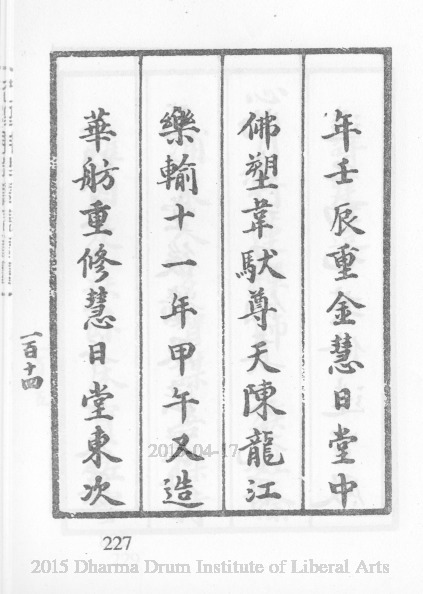 年壬辰重金慧日堂中
佛塑韋馱尊天陳龍江
樂輸十一年甲午又造
華舫重修慧日堂東次
一百十四
227
2015 Dharma Drum Institute of Liberal Arts